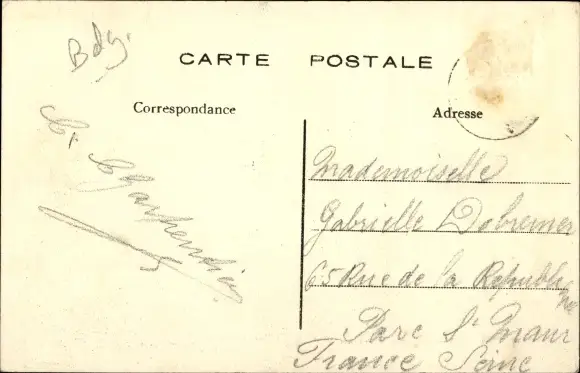 Bdg.
CARTE POSTALE
Correspondance
Adresse
Mademoiselle
Gabrielle Dobremer
65 Rue de la Republique
Parc St Maur
France Seine